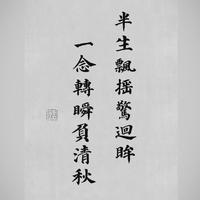 半生飄搖驚迴眸
一念轉瞬負清秋